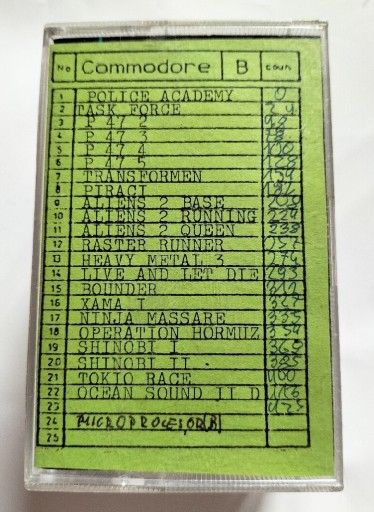 No Commodore B COUN.
1 POLICE ACADEMY 0
2 TASK FORCE
3 P 47 2
4 P 47 3
5 P 47 4 100
6 P 47 5 128
7 TRANSFORMEN 154
8 PIRACI
9 ALIENS 2 BASE
10 ALIENS 2 RUNNING 224
11 ALIENS 2 QUEEN 238
12 RASTER RUNNER 257
13 HEAVY METAL 3 274
14 LIVE AND LET DIE 293
15 BOUNDER
16 XAMA I
17 NINJA MASSARE 335
18 OPERATION HORMUZ 354
19 SHINOBI I
20 SHINOBI II. 385
21 TOKIO RACE 400
22 OCEAN SOUND II D 413
23 425
24 MICROPROCESOR(B)
25